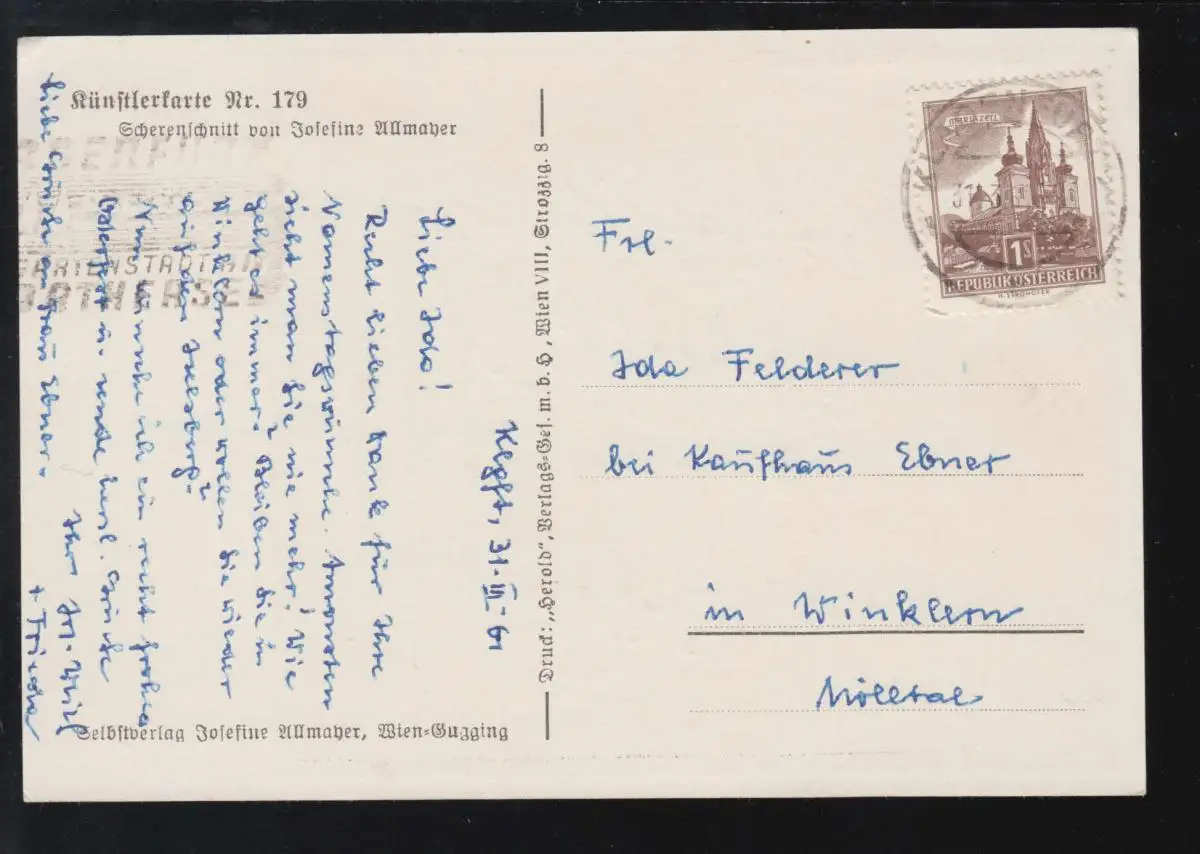 Künstlerkarte Nr. 179
Scherenschnitt von Josefine Allmayer
Klgft, 31.III.61
Liebe Ida!
Recht lieben Dank für Ihre
Namenstagswünsche. Ansonsten
sieht man Sie nie mehr! Wie
geht es immer? Bleiben Sie in
Winklern oder wollen Sie wieder
auf den Iselsberg?
Nun wünsche ich ein recht frohes
Osterfest u. sende herzl. Grüße
Ihr
+ Frieda
Liebe Grüße an Frau Ebner.
Selbstverlag Josefine Allmayer, Wien-Gugging
Druck: „Herold", Verlags-Ges. m. b. H., Wien VIII, Strozzig. 8
GARTENSTADT AM
MARIAZELL
1S
REPUBLIK ÖSTERREICH
H. STROHOFER
31.
Frl.
Ida Felderer
bei Kaufhaus Ebner
in Winklern
Mölltal